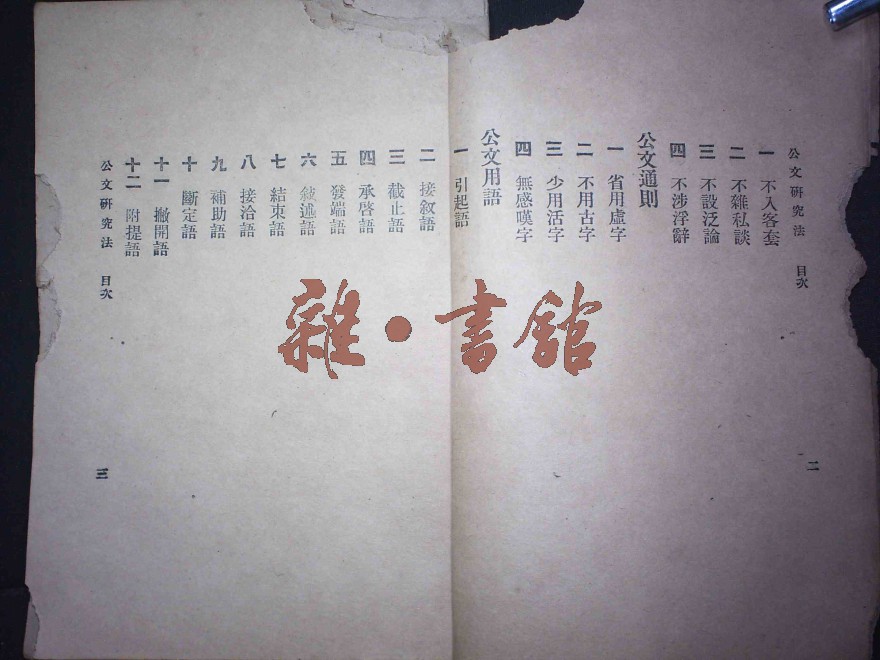 公文研究法 目次
一 不入客套
二 不雜私談
三 不設泛論
四 不涉浮辭
公文通則
一 省用虛字
二 不用古字
三 少用活字
四 無感嘆字
公文用語
一 引起語
二
二 接敘語
三 截止語
四 承啓語
五 發端語
六 敍述語
七 結束語
八 接洽語
九 補助語
十 斷定語
十一 撇開語
十二 附提語
公文研究法 目次
三
雜·書館